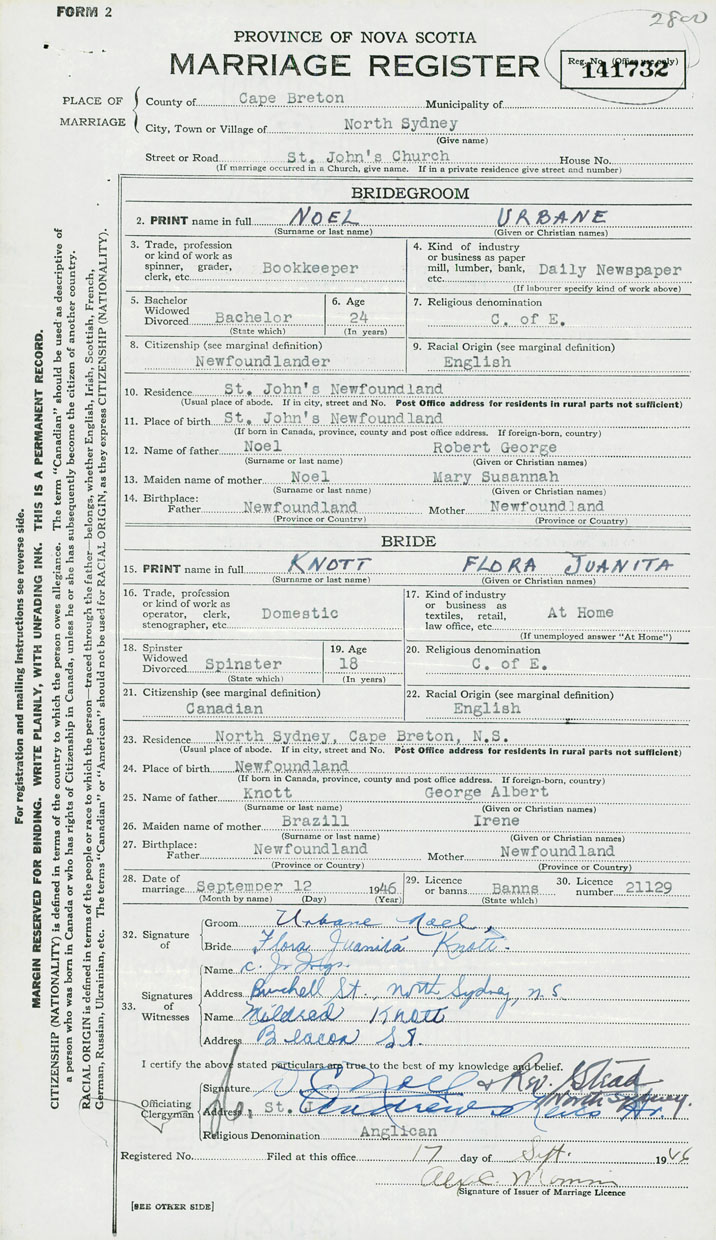 FORM 2
2800
PROVINCE OF NOVA SCOTIA
MARRIAGE REGISTER
Reg. No. (Office use only)
141732
PLACE OF MARRIAGE
County of Cape Breton Municipality of
City, Town or Village of North Sydney
(Give name)
Street or Road St. John's Church House No.
(If marriage occurred in a Church, give name. If in a private residence give street and number)
BRIDEGROOM
2. PRINT name in full NOEL URBANE
(Surname or last name) (Given or Christian names)
3. Trade, profession or kind of work as spinner, grader, clerk, etc. Bookkeeper
4. Kind of industry or business as paper mill, lumber, bank, etc. Daily Newspaper
(If labourer specify kind of work above)
5. Bachelor Widowed Divorced Bachelor
(State which)
6. Age 24
(In years)
7. Religious denomination
C. of E.
8. Citizenship (see marginal definition)
Newfoundlander
9. Racial Origin (see marginal definition)
English
10. Residence St. John's Newfoundland
(Usual place of abode. If in city, street and No. Post Office address for residents in rural parts not sufficient)
11. Place of birth St. John's Newfoundland
(If born in Canada, province, county and post office address. If foreign-born, country)
12. Name of father Noel Robert George
(Surname or last name) (Given or Christian names)
13. Maiden name of mother Noel Mary Susannah
(Surname or last name) (Given or Christian names)
14. Birthplace:
Father Newfoundland Mother Newfoundland
(Province or Country) (Province or Country)
BRIDE
15. PRINT name in full KNOTT FLORA JUANITA
(Surname or last name) (Given or Christian names)
16. Trade, profession or kind of work as operator, clerk, stenographer, etc. Domestic
17. Kind of industry or business as textiles, retail, law office, etc. At Home
(If unemployed answer "At Home")
18. Spinster Widowed Divorced Spinster
(State which)
19. Age 18
(In years)
20. Religious denomination
C. of E.
21. Citizenship (see marginal definition)
Canadian
22. Racial Origin (see marginal definition)
English
23. Residence North Sydney, Cape Breton, N.S.
(Usual place of abode. If in city, street and No. Post Office address for residents in rural parts not sufficient)
24. Place of birth Newfoundland
(If born in Canada, province, county and post office address. If foreign-born, country)
25. Name of father Knott George Albert
(Surname or last name) (Given or Christian names)
26. Maiden name of mother Brazill Irene
(Surname or last name) (Given or Christian names)
27. Birthplace:
Father Newfoundland Mother Newfoundland
(Province or Country) (Province or Country)
28. Date of marriage September 12 1946
(Month by name) (Day) (Year)
29. Licence or banns Banns
(State which)
30. Licence number 21129
32. Signature of
Groom Urbane Noel
Bride Flora Juanita Knott.
33. Signatures of Witnesses
Name C.
Address Burchell St., North Sydney, N.S.
Name Mildred Knott
Address Beacon St.
I certify the above stated particulars are true to the best of my knowledge and belief.
Officiating Clergyman
Signature Noel & Rev. Stead
North Sydney.
Address St. J
Religious Denomination Anglican
Registered No. Filed at this office 17 day of Sept. 1946
Alex C.
(Signature of Issuer of Marriage Licence
[SEE OTHER SIDE]
For registration and mailing instructions see reverse side.
MARGIN RESERVED FOR BINDING. WRITE PLAINLY, WITH UNFADING INK. THIS IS A PERMANENT RECORD.
CITIZENSHIP (NATIONALITY) is defined in terms of the country to which the person owes allegiance. The term "Canadian" should be used as descriptive of
a person who was born in Canada or who has rights of Citizenship in Canada, unless he or she has subsequently become the citizen of another country.
RACIAL ORIGIN is defined in terms of the people or race to which the person—traced through the father—belongs, whether English, Irish, Scottish, French,
German, Russian, Ukrainian, etc. The terms "Canadian" or "American" should not be used for RACIAL ORIGIN, as they express CITIZENSHIP (NATIONALITY).